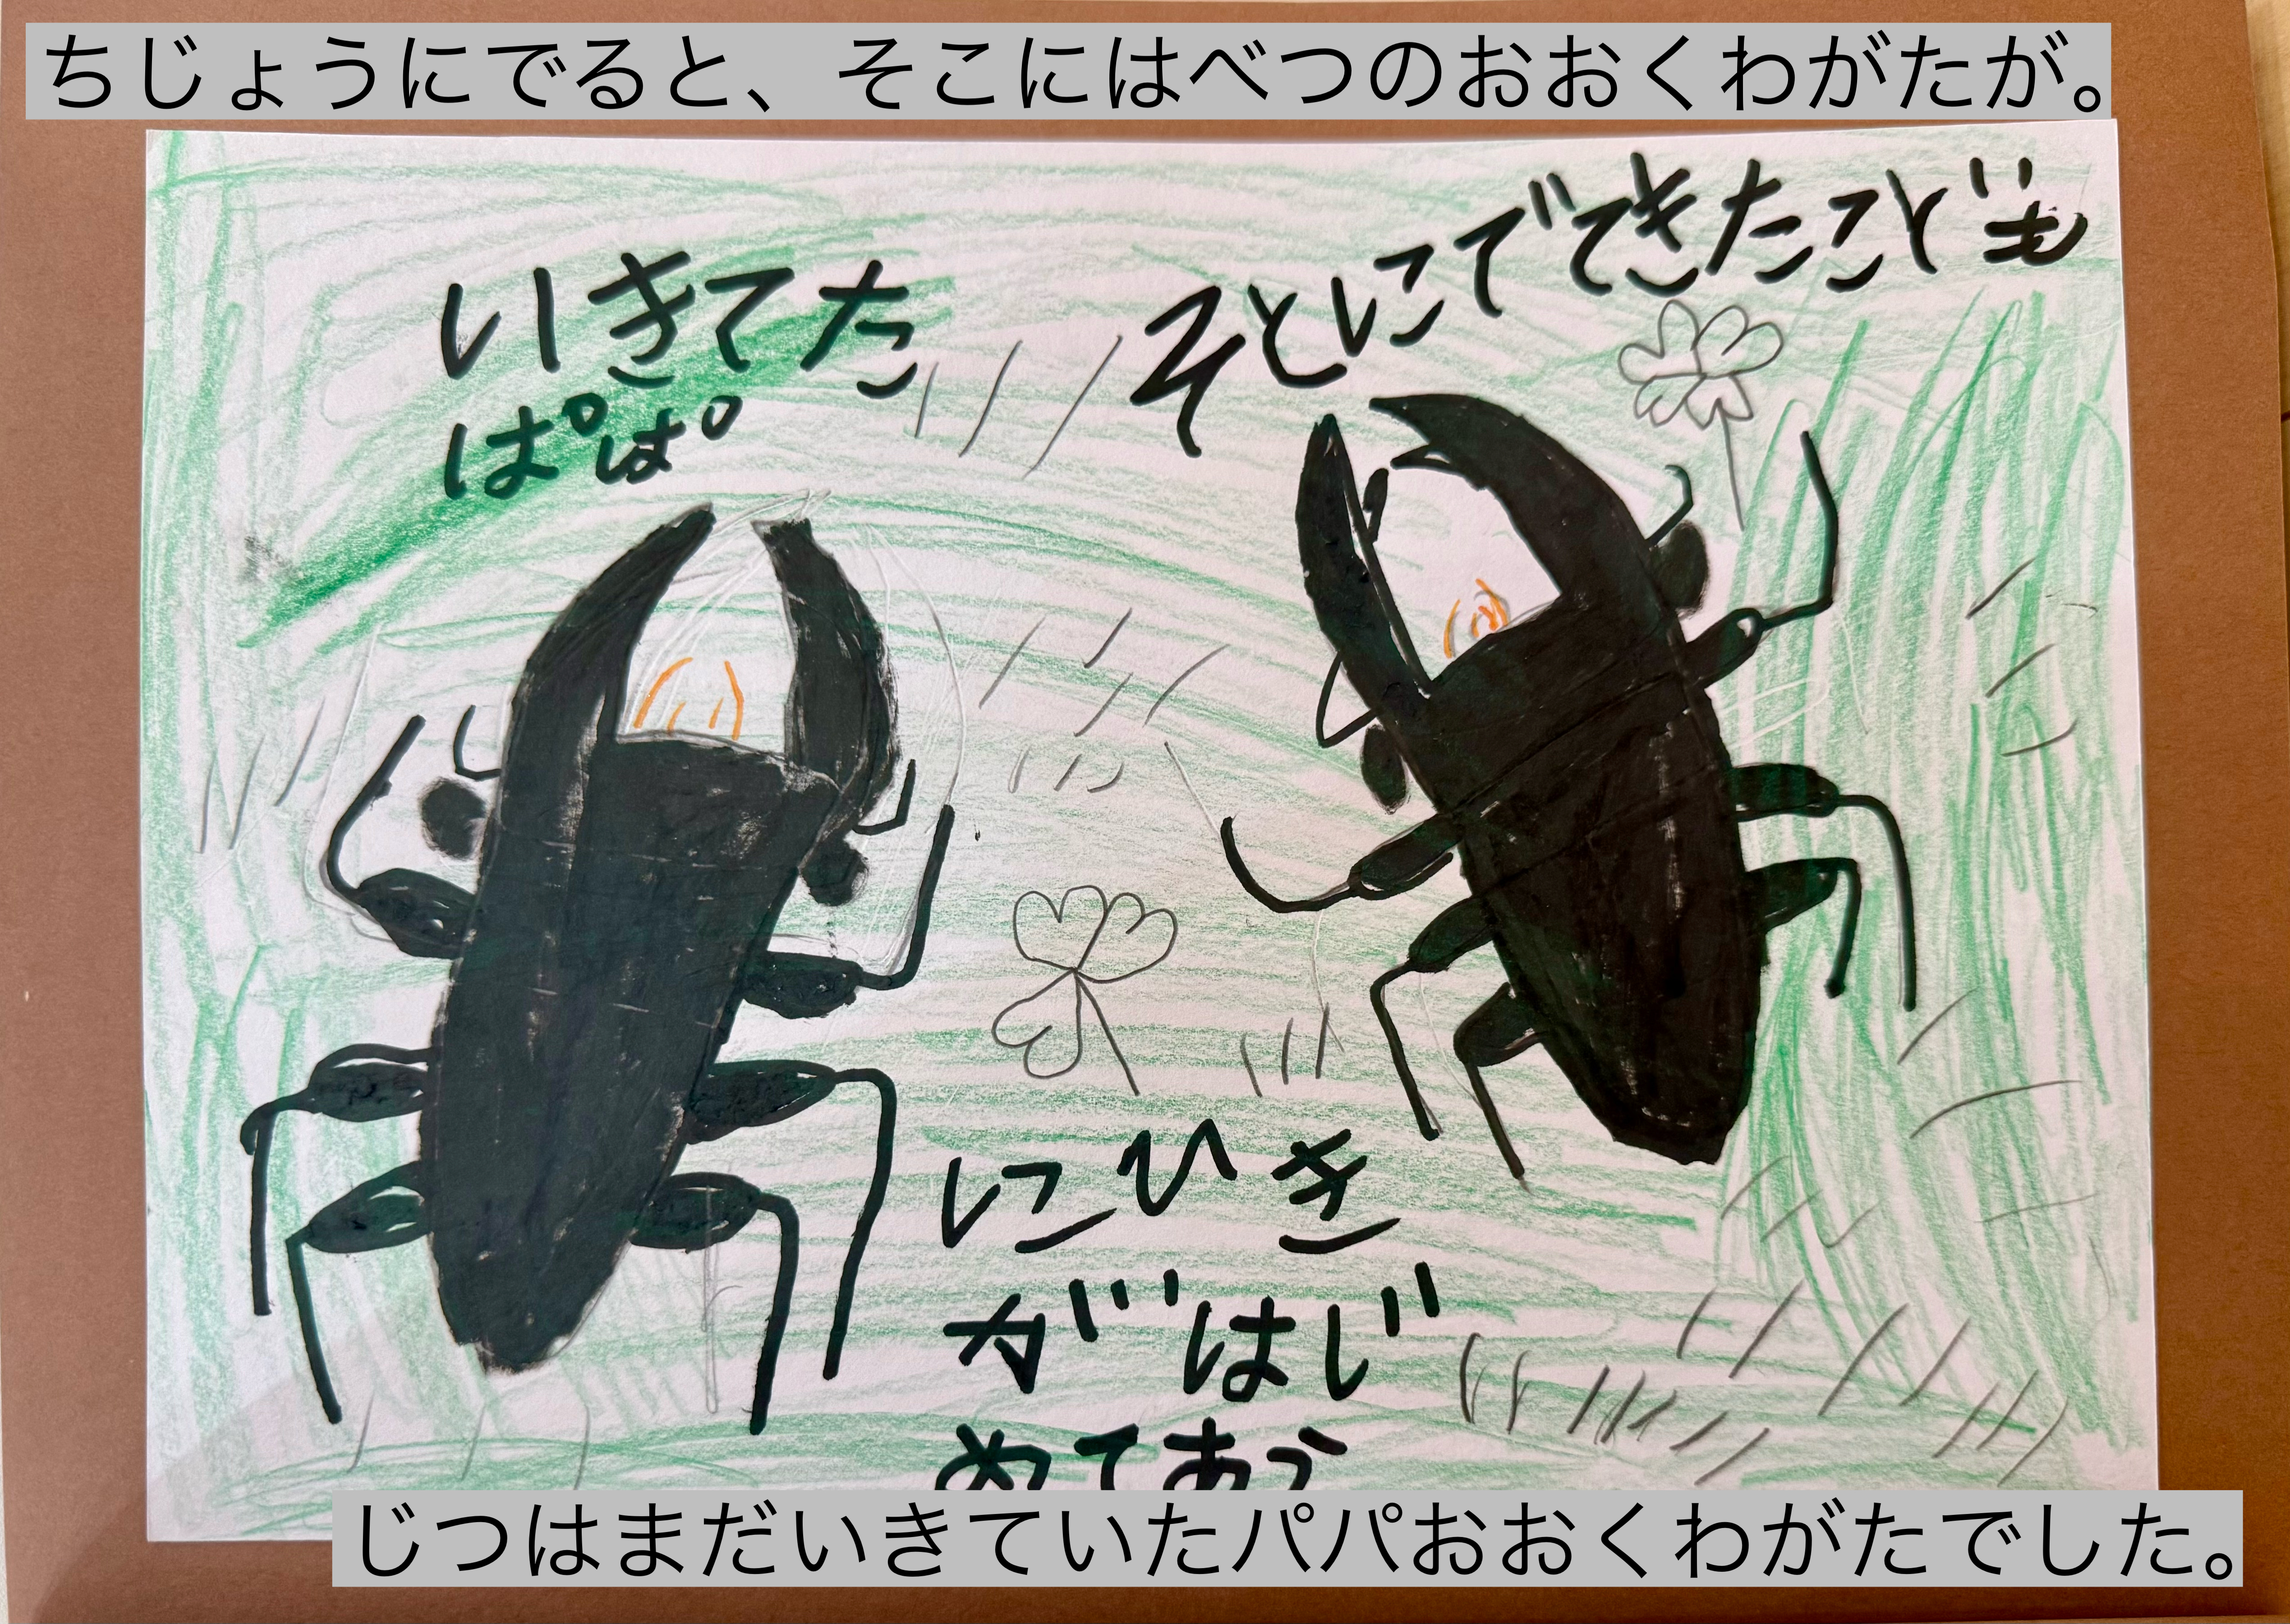 ちじょうにでると、そこにはべつのおおくわがたが。
いきてた
ぱぱ
そとにでてきたこども
にひき
がはじ
めてあう
じつはまだいきていたパパおおくわがたでした。